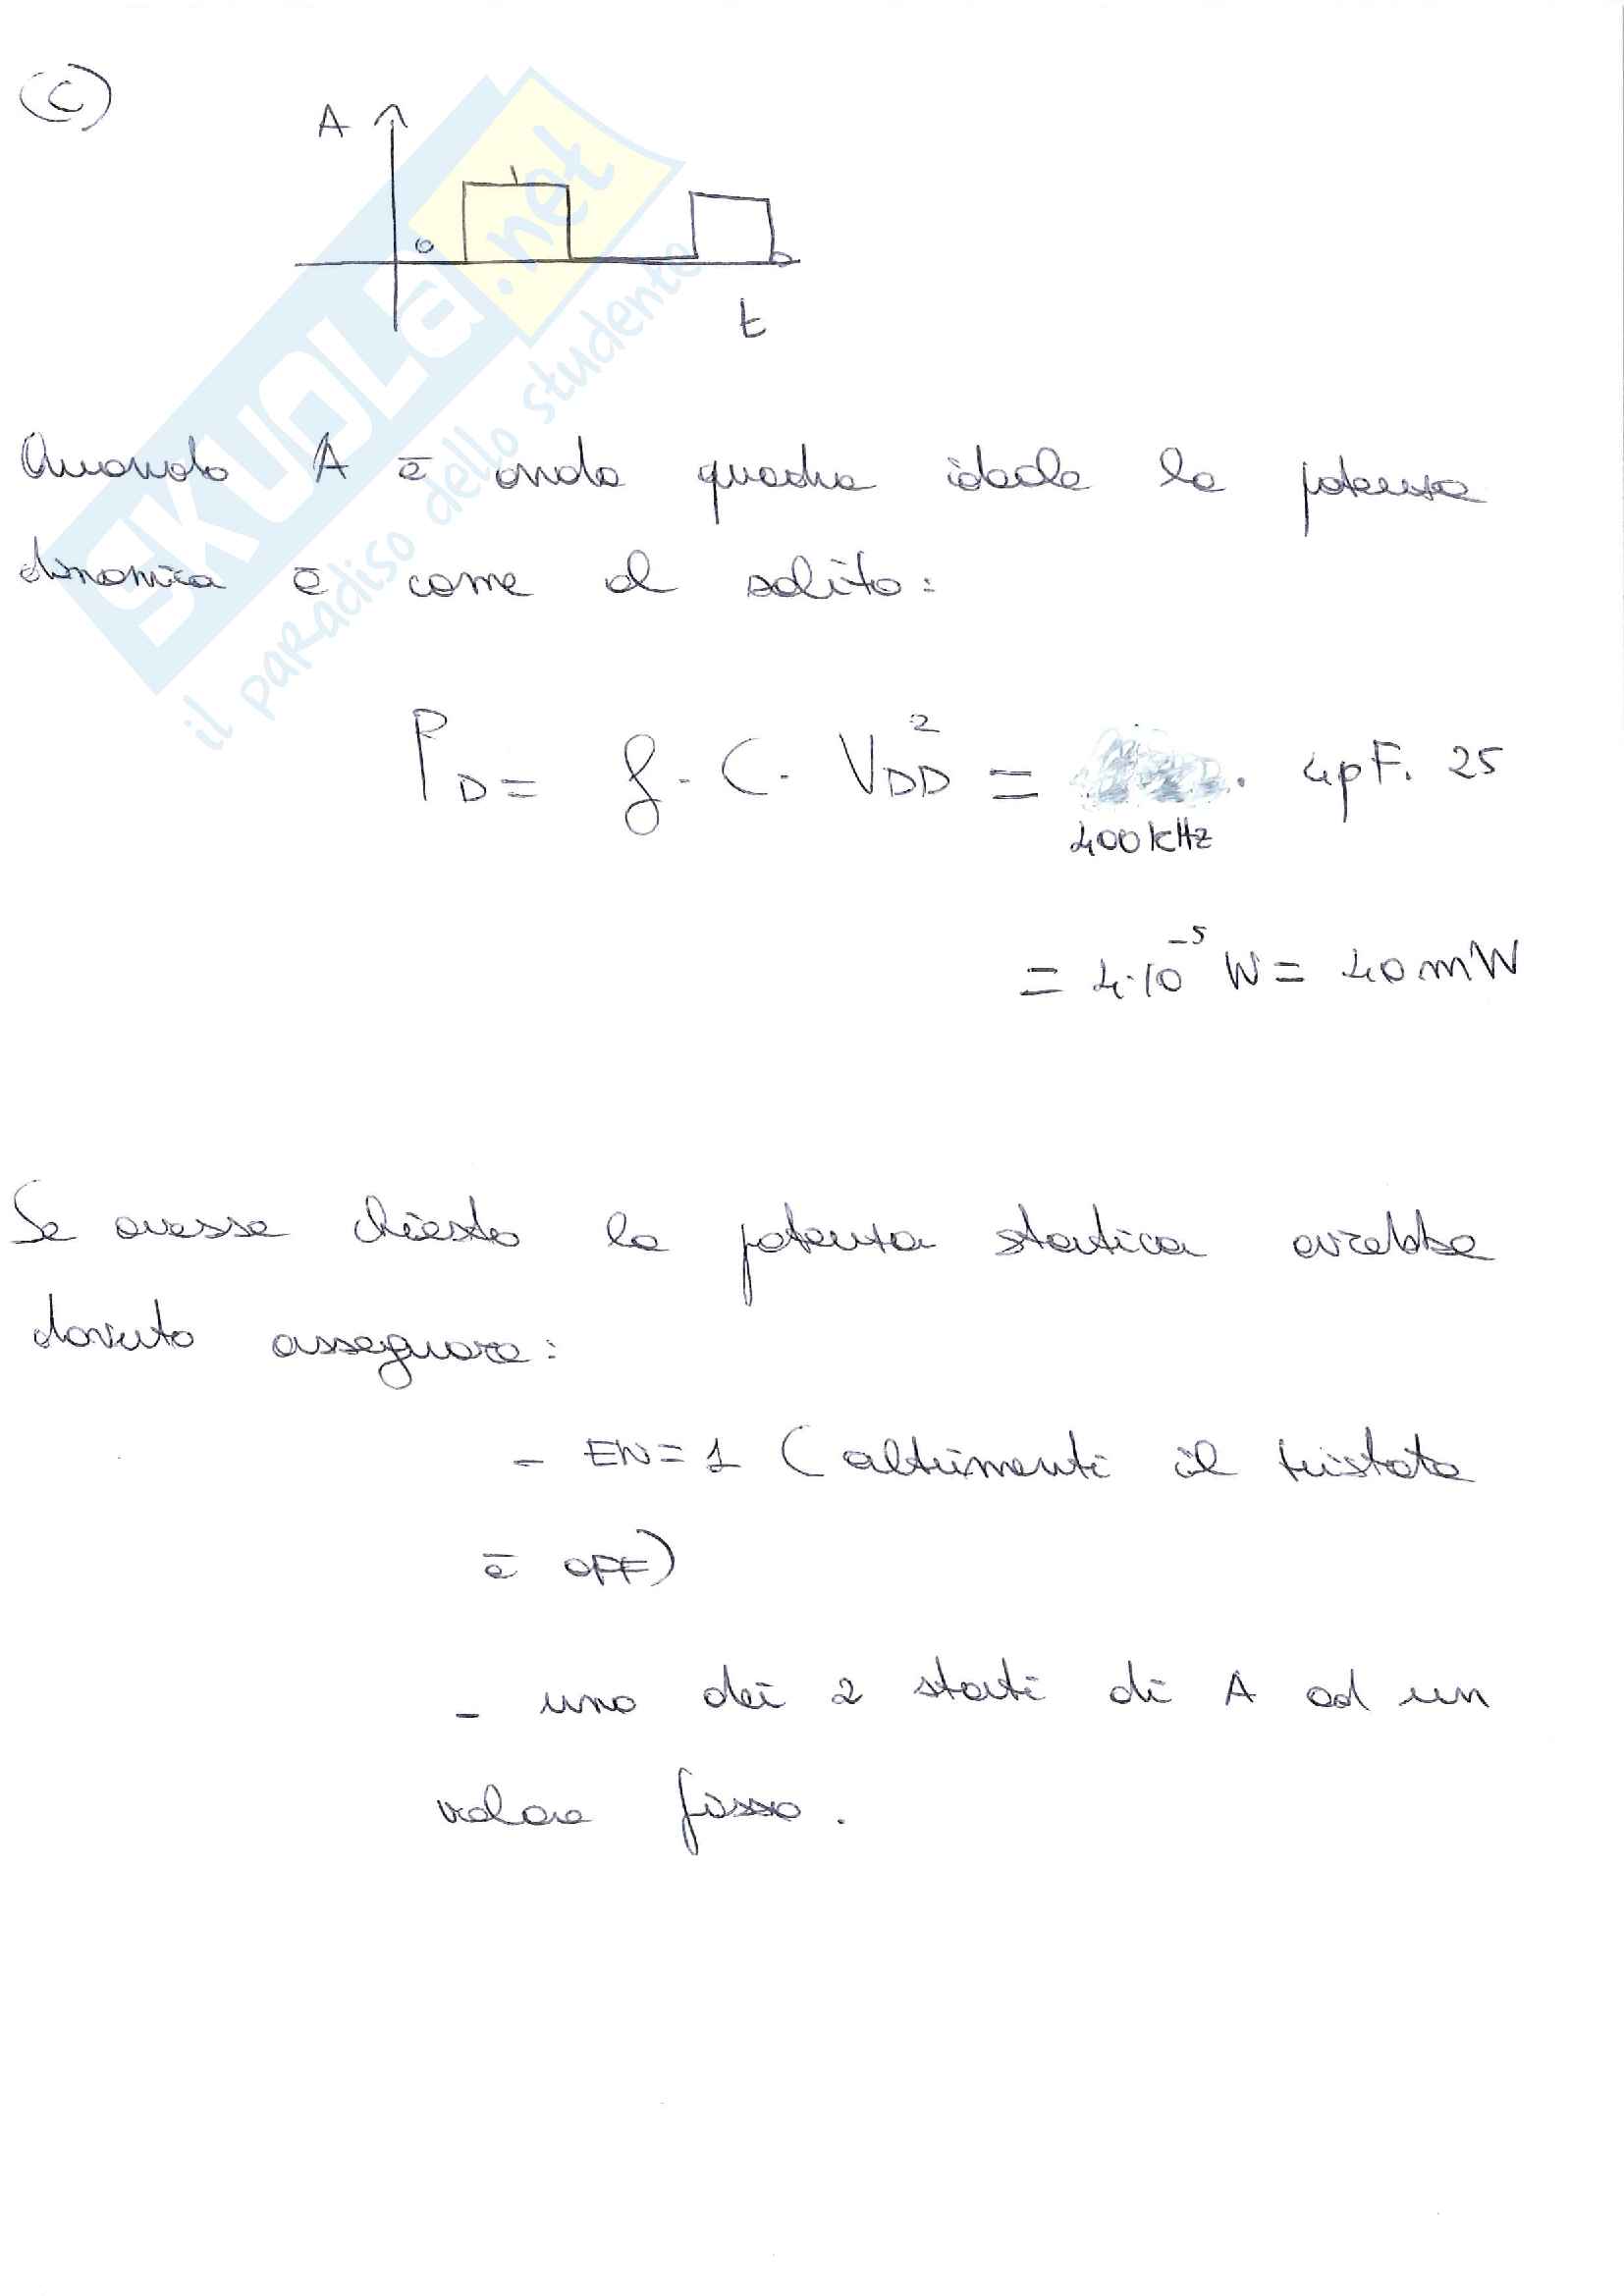 (C)
A
1
0
t
Quando A è onda quadra ideale la potenza
dinamica è come al solito:
P_D = f · C · V_DD² = · 4pF · 25
400 kHz
= 4·10⁻⁵ W = 40 mW
Se avesse chiesto la potenza statica avrebbe
dovuto assegnare:
- EN=1 (altrimenti il tristate
è OFF)
- uno dei 2 stati di A ad un
valore fisso.
SKUOLA.net
il paradiso dello studente